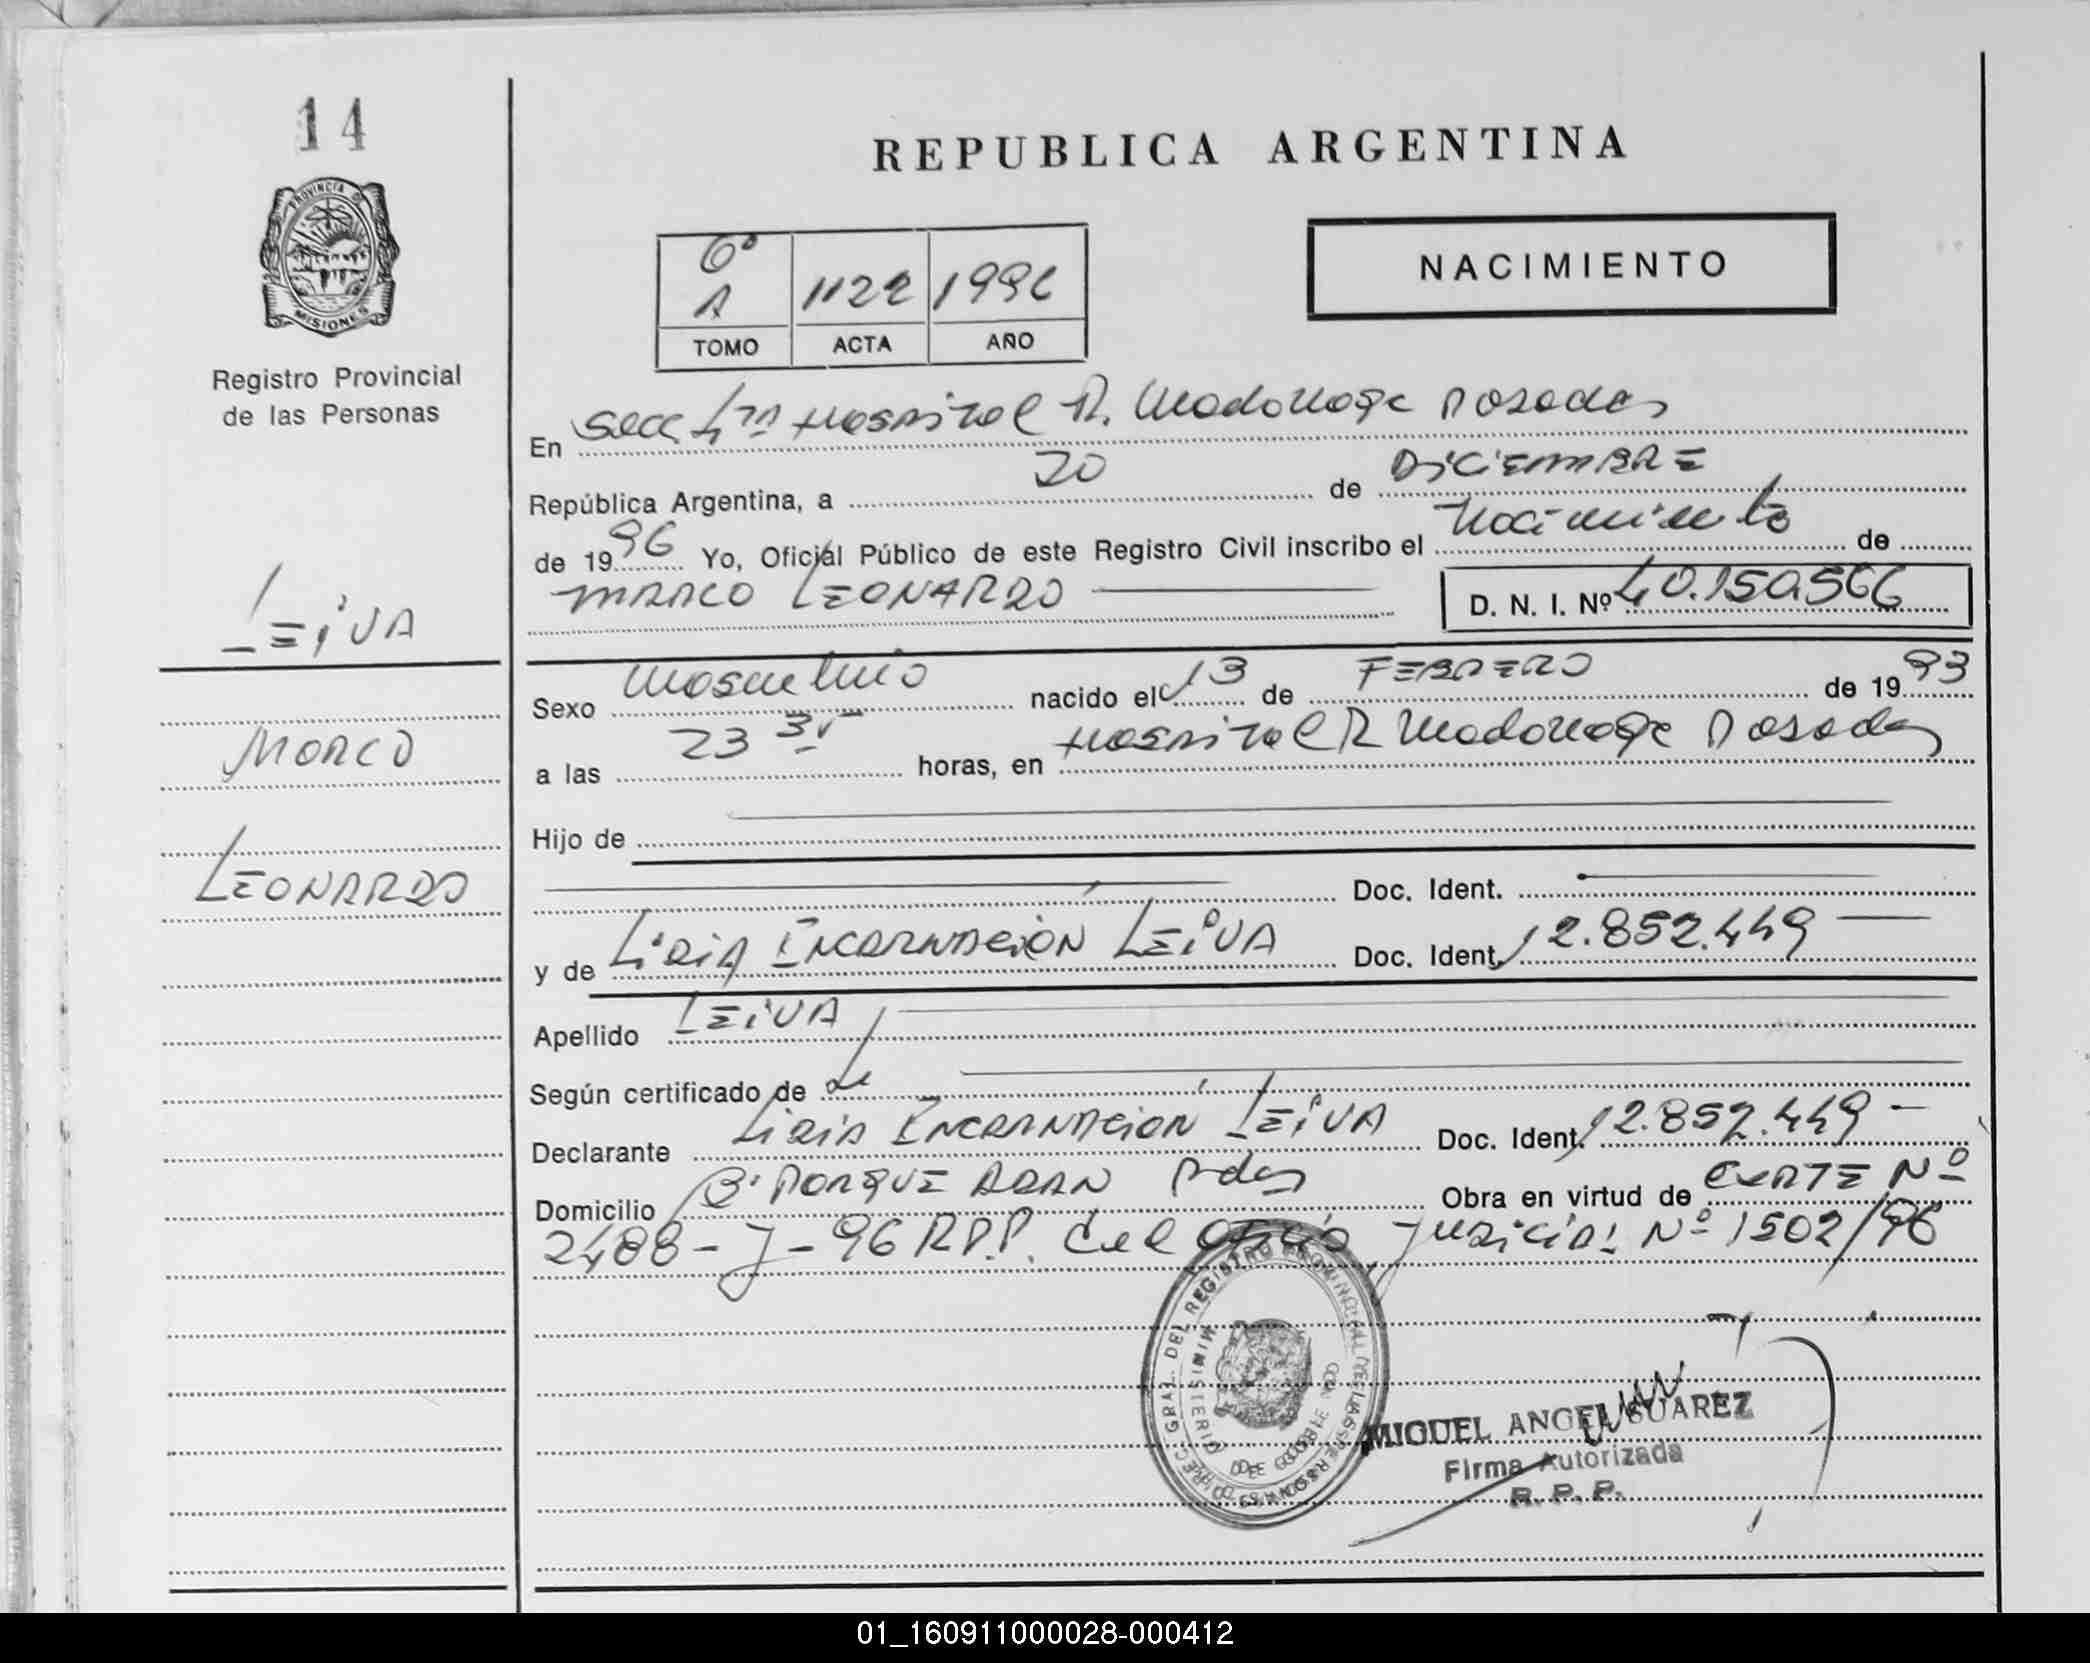 14
REPUBLICA ARGENTINA
PROVINCIA DE
MISIONES
Registro Provincial
de las Personas
NACIMIENTO
6º
A 1122 1996
TOMO ACTA AÑO
En Secc 4ta Hospital R. Madariaga Posadas
República Argentina, a 20 de DICIEMBRE
de 1996 Yo, Oficial Público de este Registro Civil inscribo el Nacimiento de
MARCO LEONARDO D. N. I. Nº 40.150.566
LEIVA
MARCO
LEONARDO
Sexo Masculino nacido el 13 de FEBRERO de 1993
a las 23 horas, en Hospital R Madariaga Posadas
Hijo de
Doc. Ident.
y de LIRIA ENCARNACIÓN LEIVA Doc. Ident. 12.852.449
Apellido LEIVA
Según certificado de
Declarante LIRIA ENCARNACIÓN LEIVA Doc. Ident. 12.852.449
Domicilio Bº PARQUE ADAN Pdas Obra en virtud de EXPTE Nº
2488-J-96 R.P.P. del Oficio Judicial Nº 1502/96
DIREC. GRAL. DEL REGISTRO PROVINCIAL DE LAS PERSONAS
MIGUEL ANGEL SUAREZ
Firma Autorizada
R. P. P.
01_160911000028-000412